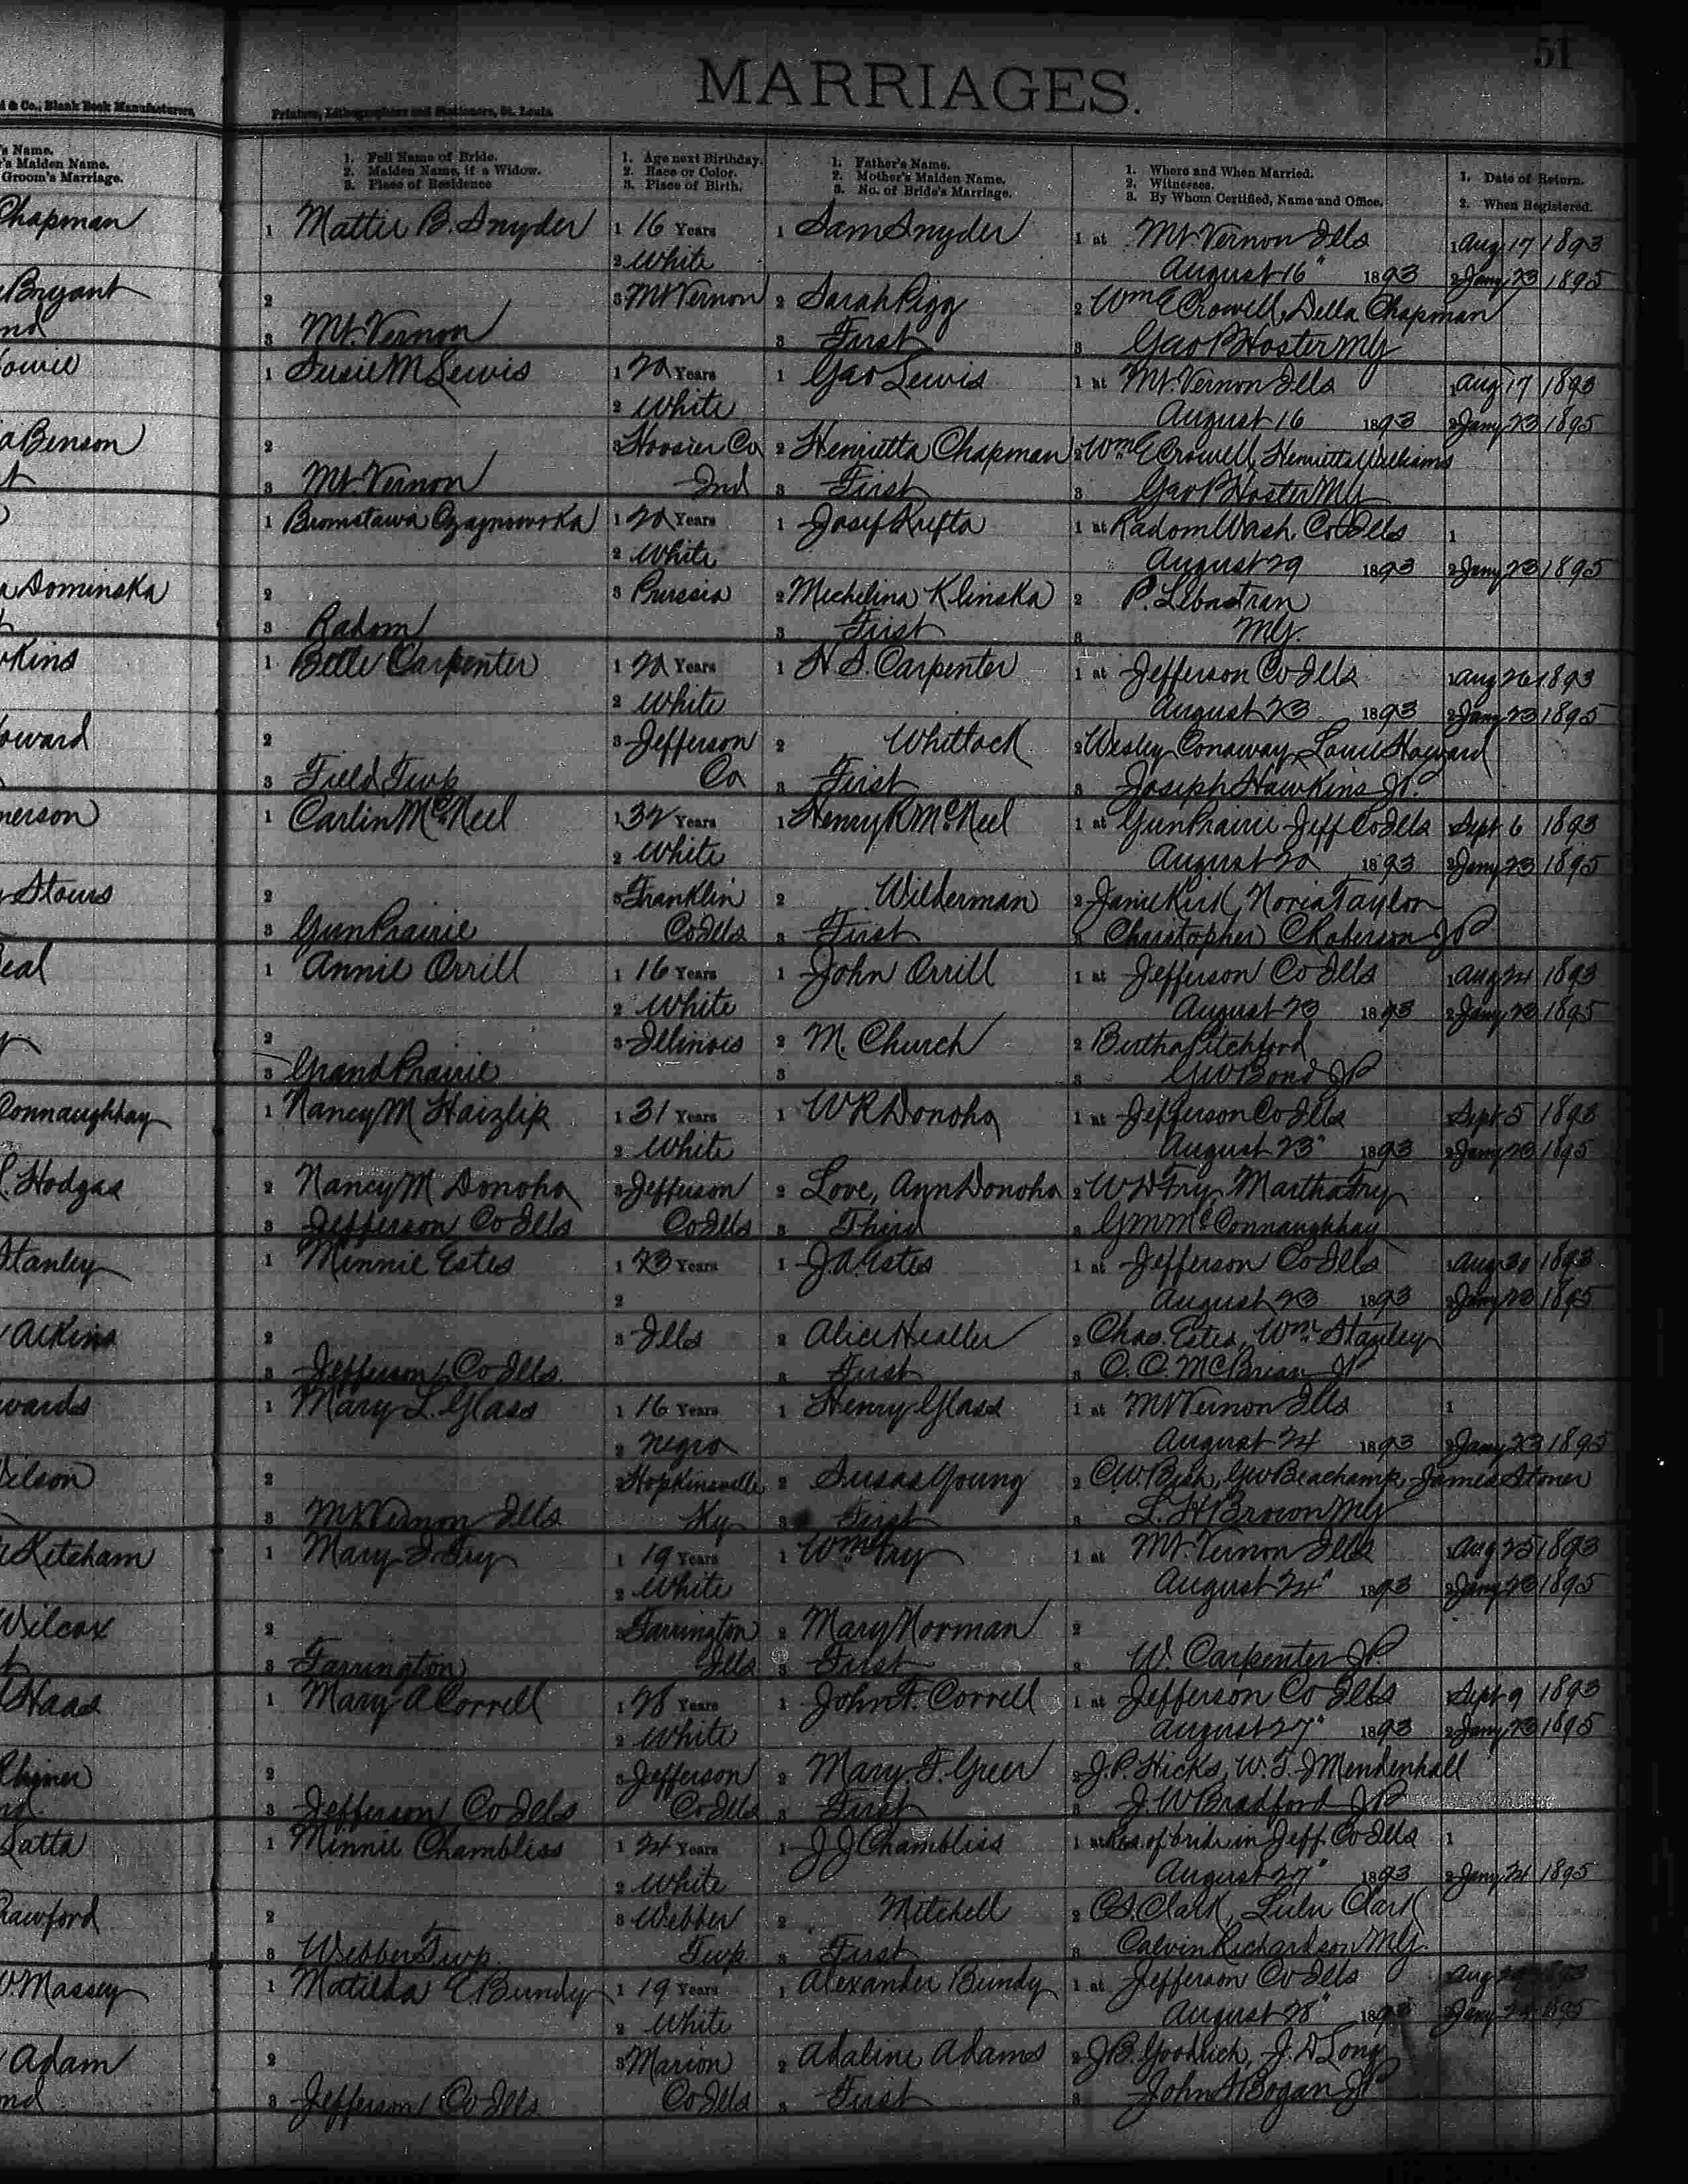 51
MARRIAGES.
& Co., Blank Book Manufacturers,
Printers, Lithographers and Stationers, St. Louis.
's Name.
's Maiden Name.
Groom's Marriage.
1. Full Name of Bride.
2. Maiden Name, if a Widow.
3. Place of Residence
1. Age next Birthday.
2. Race or Color.
3. Place of Birth.
1. Father's Name.
2. Mother's Maiden Name.
3. No. of Bride's Marriage.
1. Where and When Married.
2. Witnesses.
3. By Whom Certified, Name and Office.
1. Date of Return.
2. When Registered.
Chapman 1 Mattie B. Snyder 1 16 Years 1 Sam Snyder 1 at Mt. Vernon Ills 1 Aug 17 1893
2 White August 16" 1893 2 Jany 23 1895
Bryant 2 3 Mt Vernon 2 Sarah Pigg 2 Wm E Crowell, Della Chapman
3 Mt. Vernon 3 First 3 Geo P Hoster MG
1 Susie M Lewis 1 20 Years 1 Geo Lewis 1 at Mt. Vernon Ills 1 Aug 17 1893
2 White August 16 1893 2 Jany 23 1895
Benson 2 3 Hoosier Co 2 Henrietta Chapman 2 Wm E Crowell, Henrietta Williams
3 Mt. Vernon Ind 3 First 3 Geo P Hoster MG
1 1 20 Years 1 Josef Krefta 1 at Radom Wash Co Ills 1
2 White August 29 1893 2 Jany 23 1895
a Dominska 2 3 Prussia 2 Mechelina Klinska 2 P.
3 Radom 3 First 3 MG.
kins 1 Belle Carpenter 1 20 Years 1 H S. Carpenter 1 at Jefferson Co Ills 1 Aug 26 1893
2 White August 23 1893 2 Jany 23 1895
oward 2 3 Jefferson 2 Whitlock 2 Wesley Conaway, Howard
3 Field Twp Co 3 First 3 Joseph Hawkins JP.
merson 1 Carlin McNeel 1 32 Years 1 Henry R McNeel 1 at Gun Prairie Jeff Co Ills Sept 6 1893
2 White August 20 1893 2 Jany 23 1895
Stours 2 3 Franklin 2 Wilderman 2 Janie Kirk, Noria Taylor
3 Gun Prairie Co Ills 3 First 3 Christopher C Roberson JP
eal 1 Annie Orrill 1 16 Years 1 John Orrill 1 at Jefferson Co Ills 1 Aug 24 1893
2 White August 23 1893 2 Jany 23 1895
2 3 Illinois 2 M. Church 2 Bertha Pitchford
3 Grand Prairie 3 3 GW Bond JP
Connaughhay 1 Nancy M Haizlip 1 31 Years 1 W R Donoho 1 at Jefferson Co Ills Sept 5 1893
2 White August 23" 1893 2 Jany 23 1895
Hodges 2 Nancy M Donoho 3 Jefferson 2 Love, Ann Donoho 2 W D Fry, Martha Fry
3 Jefferson Co Ills Co Ills 3 Third 3 G M McConnaughhay
Stanley 1 Minnie Estes 1 23 Years 1 J. A. Estes 1 at Jefferson Co Ills 1 Aug 30 1893
2 August 23 1893 2 Jany 23 1895
Atkins 2 3 Ills 2 Alice Healler 2 Chas. Estes, Wm Stanley
3 Jefferson Co Ills. 3 First 3 C. C. McBrian JP
wards 1 Mary L. Glass 1 16 Years 1 Henry Glass 1 at Mt Vernon Ills 1
2 Negro August 24 1893 2 Jany 23 1895
Wilson 2 3 Hopkinsville 2 Susas Young 2 CW Bish, GW Beachamp James Stoner
3 Mt Vernon Ills Ky 3 First 3 L. H Brown MG
Ketcham 1 Mary Fry 1 19 Years 1 Wm Fry 1 at Mt. Vernon Ills 1 Aug 25 1893
2 White August 24" 1893 2 Jany 23 1895
Wilcox 2 3 Farrington 2 Mary Norman 2
3 Farrington Ills 3 First 3 W. Carpenter JP.
Haas 1 Mary A Correll 1 28 Years 1 John F. Correll 1 at Jefferson Co Ills Sept 9 1893
2 White August 27" 1893 2 Jany 23 1895
2 3 Jefferson 2 Mary F. Greer 2 J. P. Hicks, W. T. J Mendenhall
3 Jefferson Co Ills Co Ills 3 First 3 J. W Bradford JP
Satta 1 Minnie Chambliss 1 24 Years 1 J J Chambliss 1 at Res. of bride in Jeff. Co Ills 1
2 White August 27" 1893 2 Jany 24 1895
rawford 2 3 Webber 2 Mitchell 2 C S. Clark, Lulu Clark
3 Webber Twp. Twp. 3 First 3 Calvin Richardson MG.
Massey 1 Matilda E. Bundy 1 19 Years 1 Alexander Bundy 1 at Jefferson Co Ills Aug 29 1893
2 White August 28" 1893 2 Jany 24 1895
Adam 2 3 Marion 2 Adaline Adams 2 J. B. Goodrich, J. D Long
3 Jefferson Co Ills Co Ills 3 First 3 John Bogan JP